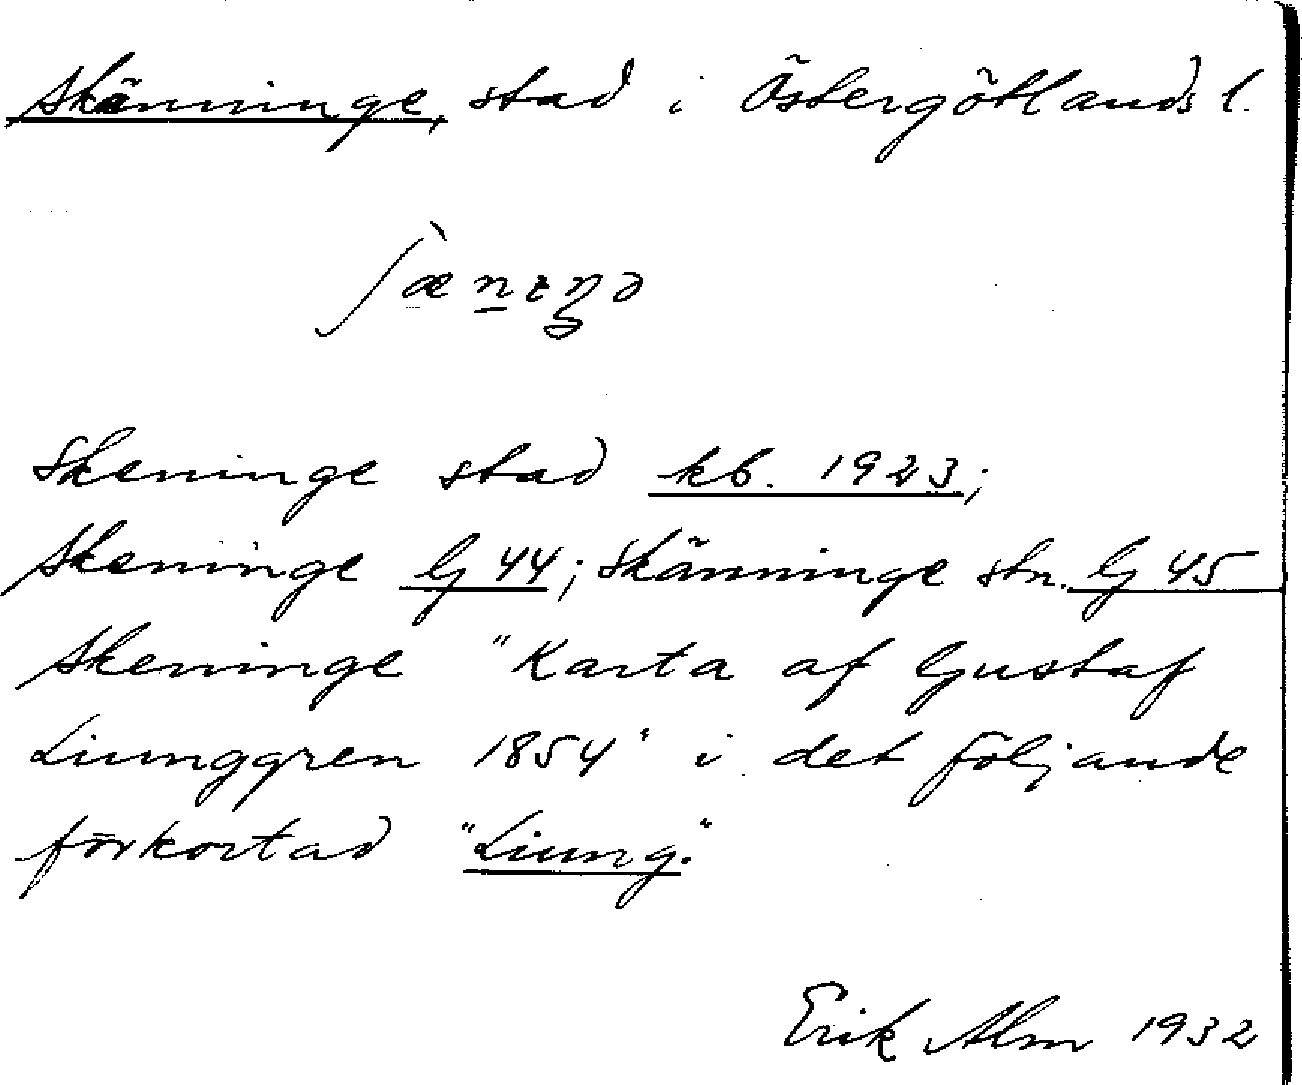 Skänninge, stad i Östergötlands l.
ʃæ̀nıŋə
Skeninge stad kb. 1923;
Skeninge G 44; Skänninge stn. G 45
Skeninge "Karta af Gustaf
Liunggren 1854" i det följande
förkortad "Liung."
Erik Alm 1932